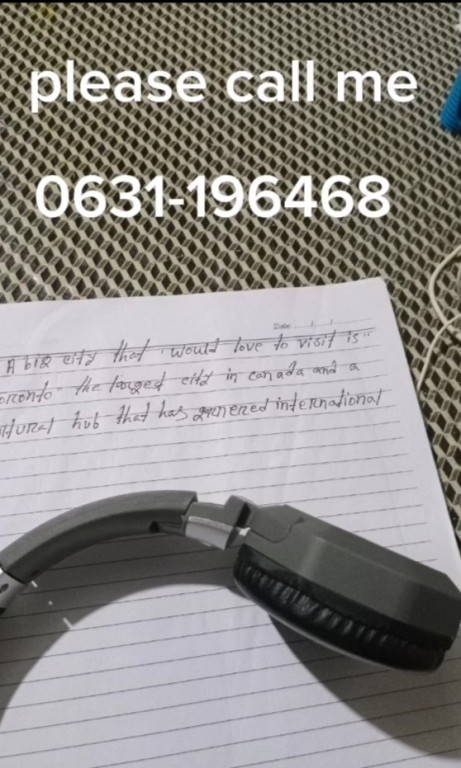 please call me
0631-196468
Date / /
A big city that would love to visit is"
oronto" the largest city in canada and a
ltural hub that has garnered international